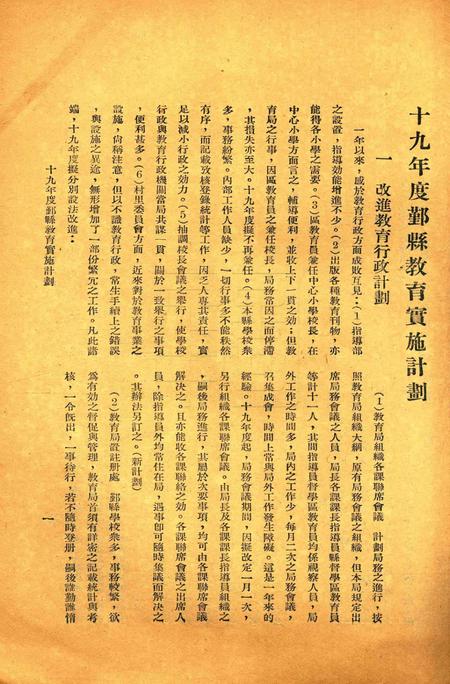 十九年度鄞縣教育實施計劃
一　改進教育行政計劃
一年以來，感於教育行政方面成敗互見：（１）指導部
之設置，指導効能增進不少。（２）出版各種教育刊物，亦
能得各小學之需要。（３）區教育員兼任中心小學校長，在
中心小學方面言之，輔導便利，並收上下一貫之効；但教
育局之行事，因區教育員之兼任校長，局務常因之而停滯
，其損失亦至大。十九年度擬不再兼任。（４）本縣學校衆
多，事務紛繁。內部工作人員缺少，一切行事多不能秩然
有序，而記載攷核登錄統計等工作，因乏人專其責任，實
足以減小行政之効力。（５）抽調校長會議之舉行，使學校
行政與教育行政機關當局共謀一貫，關於一致舉行之事項
，便利甚多。（６）村里委員會方面，近來對於教育事業之
設施，尙稱注意，但以不識教育行政，常生手續上之錯誤
，與設施之異途，無形增加了一部份繁冗之工作。凡此諸
端，十九年度擬分別設法改進：
（１）教育局組織各課聯席會議　計劃局務之進行，按
照教育局組織大綱，原有局務會議之組織，但本局規定出
席局務會議之人員，局長各課課長指導員縣督學區教育員
等計十一人，其間指導員督學區教育員均係視察人員，局
外工作之時間多，局內之工作少，每月二次之局務會議，
召集成會，時間上常與局外工作發生障礙。這是一年來的
經驗。十九年度起，局務會議期間，因擬改定一月一次，
另行組織各課聯席會議。由局長及各課課長指導員組織之
，嗣後局務進行，其屬於次要事項，均可由各課聯席會議
解決之。且亦能收各課聯絡之効。各課聯席會議之出席人
員，除指導員外均常住在局，遇事卽可隨時集議而解決之
。其辦法另訂之。（新計劃）
（２）教育局設置註冊處　鄞縣學校衆多，事務較繁，欲
爲有効之督促與管理，教育局首須有詳密之記載統計與考
核，一令旣出，一事待行，若不隨時登冊，嗣後誰勤誰惰
十九年度鄞縣教育實施計劃
一